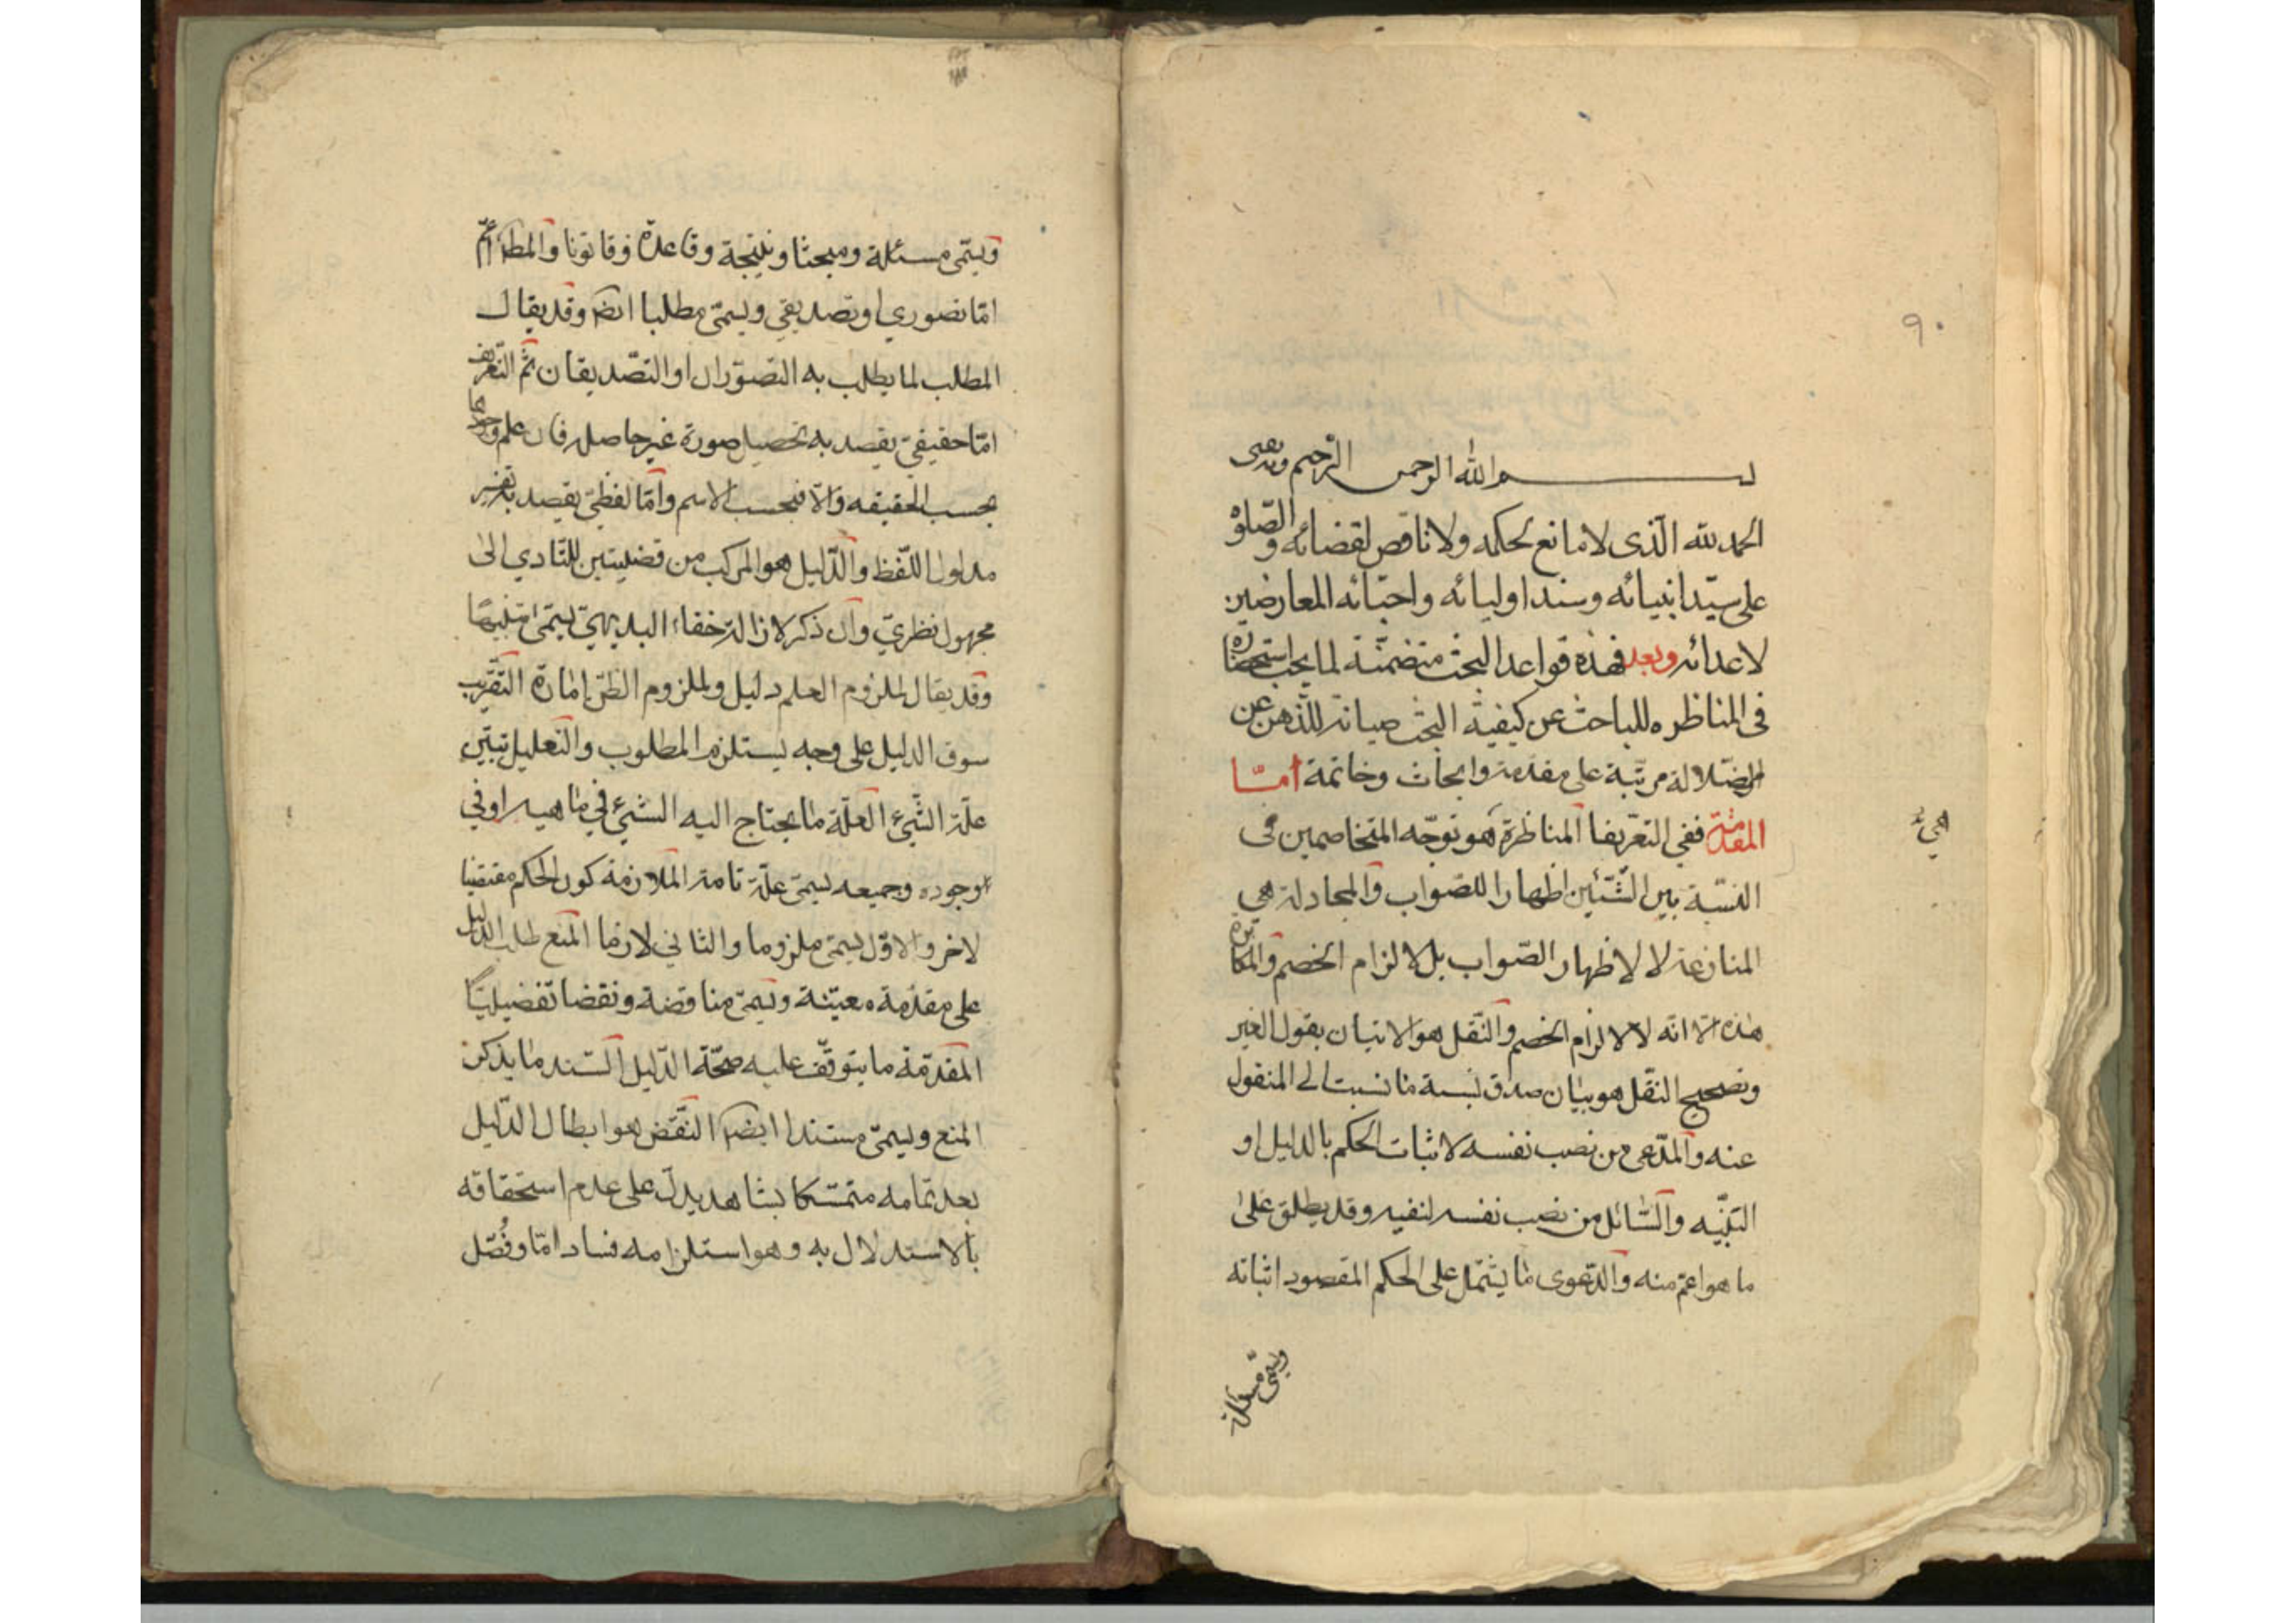 ٩٠
بسم الله الرحمن الرحيم وبه نستعين
الحمد لله الّذى لا مانع لحكمه ولا ناقص لقضائه والصّلوٰة
على سيّد انبيائه وسند اوليائه واحبّائه المعارضين
لاعدائه وبعد فهذه قواعد البحث متضمّنة لما يجب استحضاره
فى المناظره للباحث عن كيفية البحث صيانة للذّهن عن
الضّلالة مرتبة على مقدمة وابحاث وخاتمة امّا
المقدّمة ففي التعريفات المناظرة هو توجّه المتخاصمين فى
النسبة بين الشّيئين اظهارا للصّواب والمجادلة هي
المنازعة لا لاظهار الصّواب بل لالزام الخصم والمكابرة
هذه الّا انّه لا لالزام الخصم والنّقل هو الاتيان بقول الغير
وتصحيح النقل هو بيان صدق نسبة ما نسبت الى المنقول
عنه والمدّعى من نصب نفسه لاثبات الحكم بالدليل او
التنبيه والسّائل من نصب نفسه لنفيه وقد يطلق على
ما هو اعمّ منه والدّعوى ما يشتمل على الحكم المقصود اثباته
ويسمّى مسئلة
ويسمّى مسئلة ومبحثا ونتيجة وقاعدة وقانونا والمط اعمّ
امّا تصوري او تصديقي ويسمّى مطلبا ايض وقد يقال
المطلب لما يطلب به التصوّرات او التصّديقات ثمّ التّعريف
امّا حقيقيّ يقصد به تحصيل صورة غير حاصلة فان علم وجودها
بحسب الحقيقه والّا فبحسب الاسم وامّا لفظيّ يقصد به تفسير
مدلول اللّفظ والدّليل هو المركب من قضيتين للتّادي الى
مجهول نظريّ وان ذكر لازالة خفاء البديهيّ يسمّى تنبيهًا
وقد يقال لملزوم العلم دليل ولملزوم الظنّ امارة التّقريب
سوق الدليل على وجه يستلزم المطلوب والتعليل تبيّن
علّة الشّيء العلّة ما يحتاج اليه الشيء في ماهيته او في
وجوده وجميعه يسمّى علّة تامة الملازمة كون الحكم مقتضيا
لاخر والاوّل يسمّى ملزوما والثاني لازما المنع طلب الدليل
على مقدّمة معيّنة ويسمّى مناقضة ونقضا تفصيليّاً
المقدّمة ما يتوقّف عليه صحّة الدّليل السّند ما يذكر
المنع ويسمّى مستندا ايضا النّقض هو ابطال الدّليل
بعد تمامه متمسّكا بشاهد يدلّ على عدم استحقاقه
بالاستدلال به وهو استلزامه فسادا امّا وفُصّل